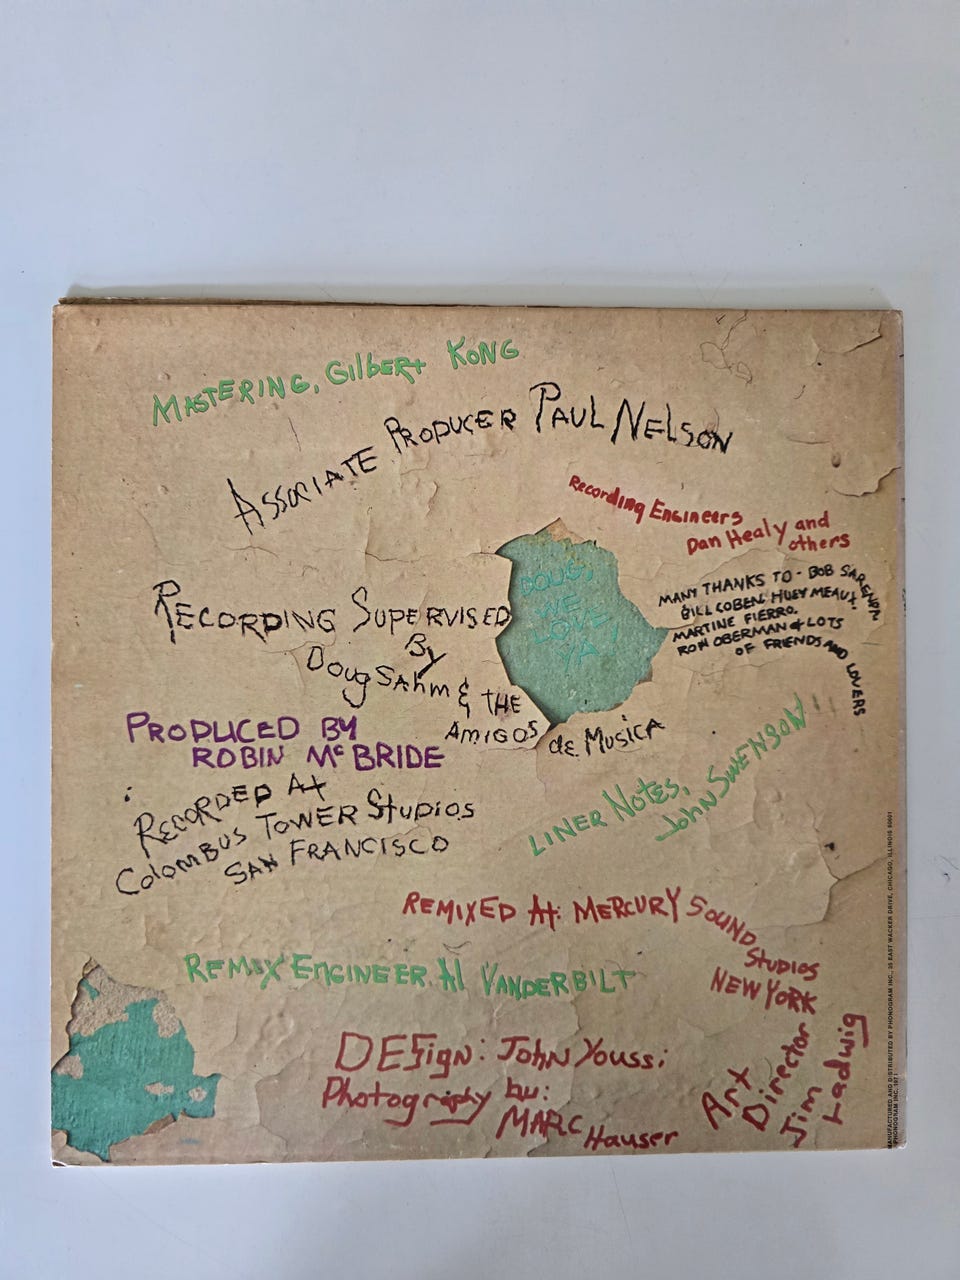 MASTERING, GilbERt KONG
ASSOCIATE PRODUCER PAUL NELSON
Recording Engineers
Dan Healy and
others
DOUG,
WE
LOVE
YA!
MANY THANKS TO - BOB SARENPA
BILL COBEN, HUEY MEAUX,
MARTINE FIERRO.
RON OBERMAN & LOTS
OF FRIENDS AND LOVERS
RECORDING SUPERVISED
By
Doug SAhm & THE
AMIGOS de MUSICA
PRODUCED BY
ROBIN McBRIDE
RECORDED At
ColomBUS TOWER StUDiOS
SAN FRANCISCO
LINER NOTES,
JohN SWENSON!!
REMIXED At: MERCURY SOUND
STUDIOS
NEW YORK
REMIX ENGINEER. Al VANDERBILT
DESign: John Youssi
Photography by:
MARC Hauser
Art
Director
Jim
Ladwig
MANUFACTURED AND DISTRIBUTED BY PHONOGRAM INC., 35 EAST WACKER DRIVE, CHICAGO, ILLINOIS 60601